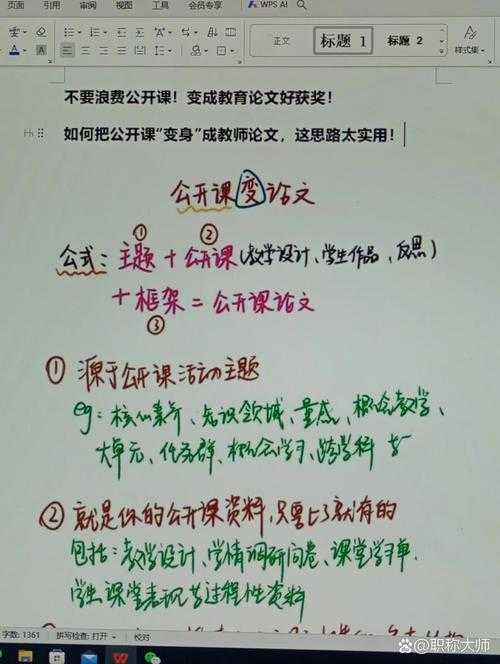 页面 引用 审阅 视图 工具 会员专享 WPS AI
正文 标题 1 标题 2 样式集
不要浪费公开课！变成教育论文好获奖！
如何把公开课“变身”成教师论文，这思路太实用！
公开课变论文
① ②
公式：主题+公开课(教学设计、学生作品、反思)
+框架=公开课论文
③
① 源于公开课活动主题
eg：核心素养、知识领域、量感、概念教学、
大单元、任务群、概念学习、跨学科 等
② 就是你的公开课资料，只要上了就有的
包括：教学设计、学情调研问卷、课堂学习单、
学生课堂表现等过程性资料
字数: 1361 拼写检查: 打开 校对
@职称大师